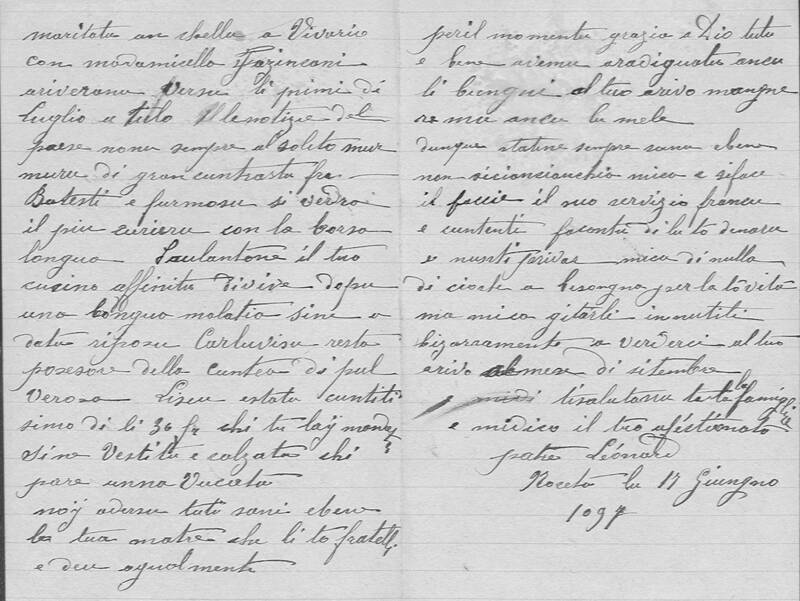 maritata an shella a Vivario
con madamicella Farinconi
ariveranu versu li primi di
luglio a tulo Ile notizie del
paese nonu sempre al solito mur
muru di gran cuntrastu fra
Batesti e furmosu si vedra
il piu curieru con la borsa
longua Paulantone il tuo
cusino affinitu di vive dopu
una longua malatia sine a
data riposu Carluvisu resta
posesore della cuntea di pul
verosa Lisu estatu cuntiti
simo di li 30 fr chi tu lay mondatti
sine vestitu e calzatu chi
pare unna Vucata
noÿ adersu tuti sani ebene
la tua matre che li to fratelli
e deu agualmente
peril momentu grazia a Dio tutu
e bene avemu aradiguatu ancu
li bungui al tuo arivo mangne
remu ancu la mele
dunque statine sempre sanu ebene
non sicionsianchio mica e siface
il faccie il nuo servizio francu
e cuntenti facontu di lu to denaru
e nuntiprivar mica di nulla
di cioche a bisongna per la tò vita
ma mica gitarli innutuli
bizarramente a verderci al tuo
arivo almese di sitembre
e midi tisalutanu tuta la famiglia
e midico il tuo afestionato
patre Léonard
Noceta lu 17 Giungno
1097